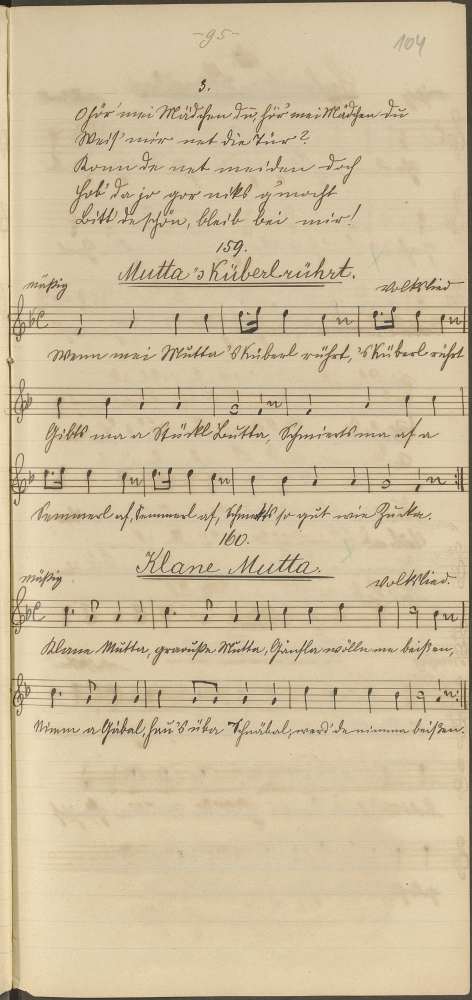 -95-
104
3.
O hör' mei Mädchen du, hör' mei Mädchen du
Weiß mir net die Tür?
Konn de net meiden doch
Hob' da jo gor niks g'mocht
Bitt de schön, bleib bei mir!
159.
Mutta 's Küberl rührt.
mäßig
Volkslied
Wenn mei Mutta 's Küberl rührt, 's Küberl rührt
Gibts ma a Stückl Butta, Schmierts ma af a
Semmerl af, Semmerl af, schmekts so gut wie Zucka.
160.
Klane Mutta.
mäßig
Volkslied.
Klane Mutta, grauße Mutta, Gänsla wölln me beißen,
Nimm a Gabal, hau 's üba 's Schnäbal, werd'n de nimma beißen.